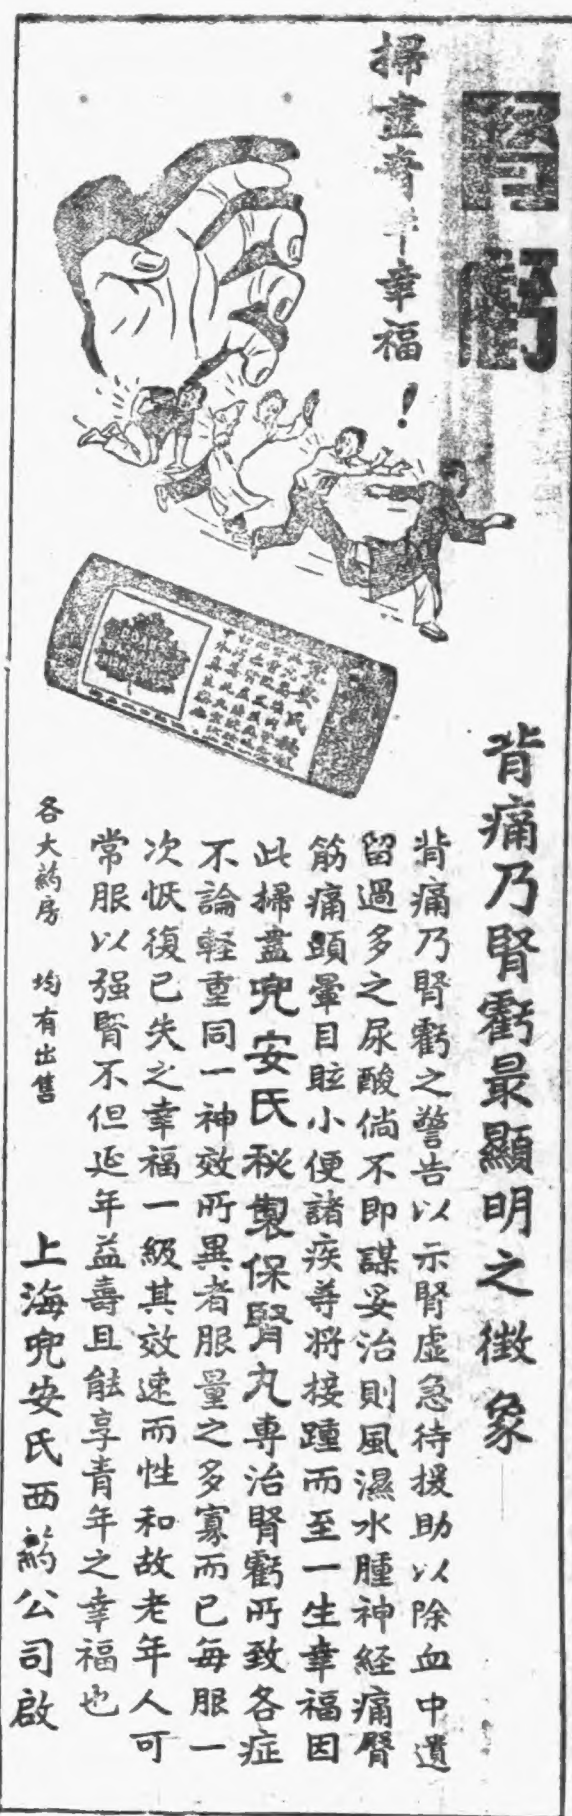 腎虧
掃盡青年幸福！
背痛乃腎虧最顯明之徴象
背痛乃腎虧之警告以示腎虛急待援助以除血中遺
留過多之尿酸倘不即謀妥治則風濕水腫神經痛臀
筋痛頭暈目眩小便諸疾等將接踵而至一生幸福因
此掃盡兜安氏秘製保腎丸專治腎虧所致各症
不論輕重同一神效所異者服量之多寡而已每服一
次恢復已失之幸福一級其效速而性和故老年人可
常服以强腎不但延年益壽且能享青年之幸福也
各大葯房 均有出售
上海兜安氏西葯公司啟